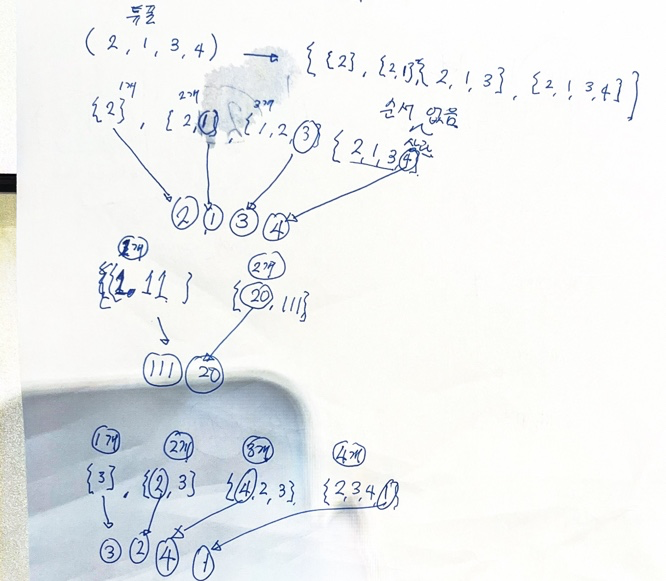 튜플
( 2, 1, 3, 4 ) → { {2}, {2,1}, { 2, 1, 3 }, { 2, 1, 3, 4 } }
1개 2개 3개 순서 없음
{2}, { 2, 1 }, { 1, 2, 3 } { 2, 1, 3, 4 }
2 1 3 4
1개 2개
111 } { 20, 111 }
111 20
1개 2개 3개 4개
{3}, { 2, 3 } { 4, 2, 3 } { 2, 3, 4, 1 }
3 2 4 1